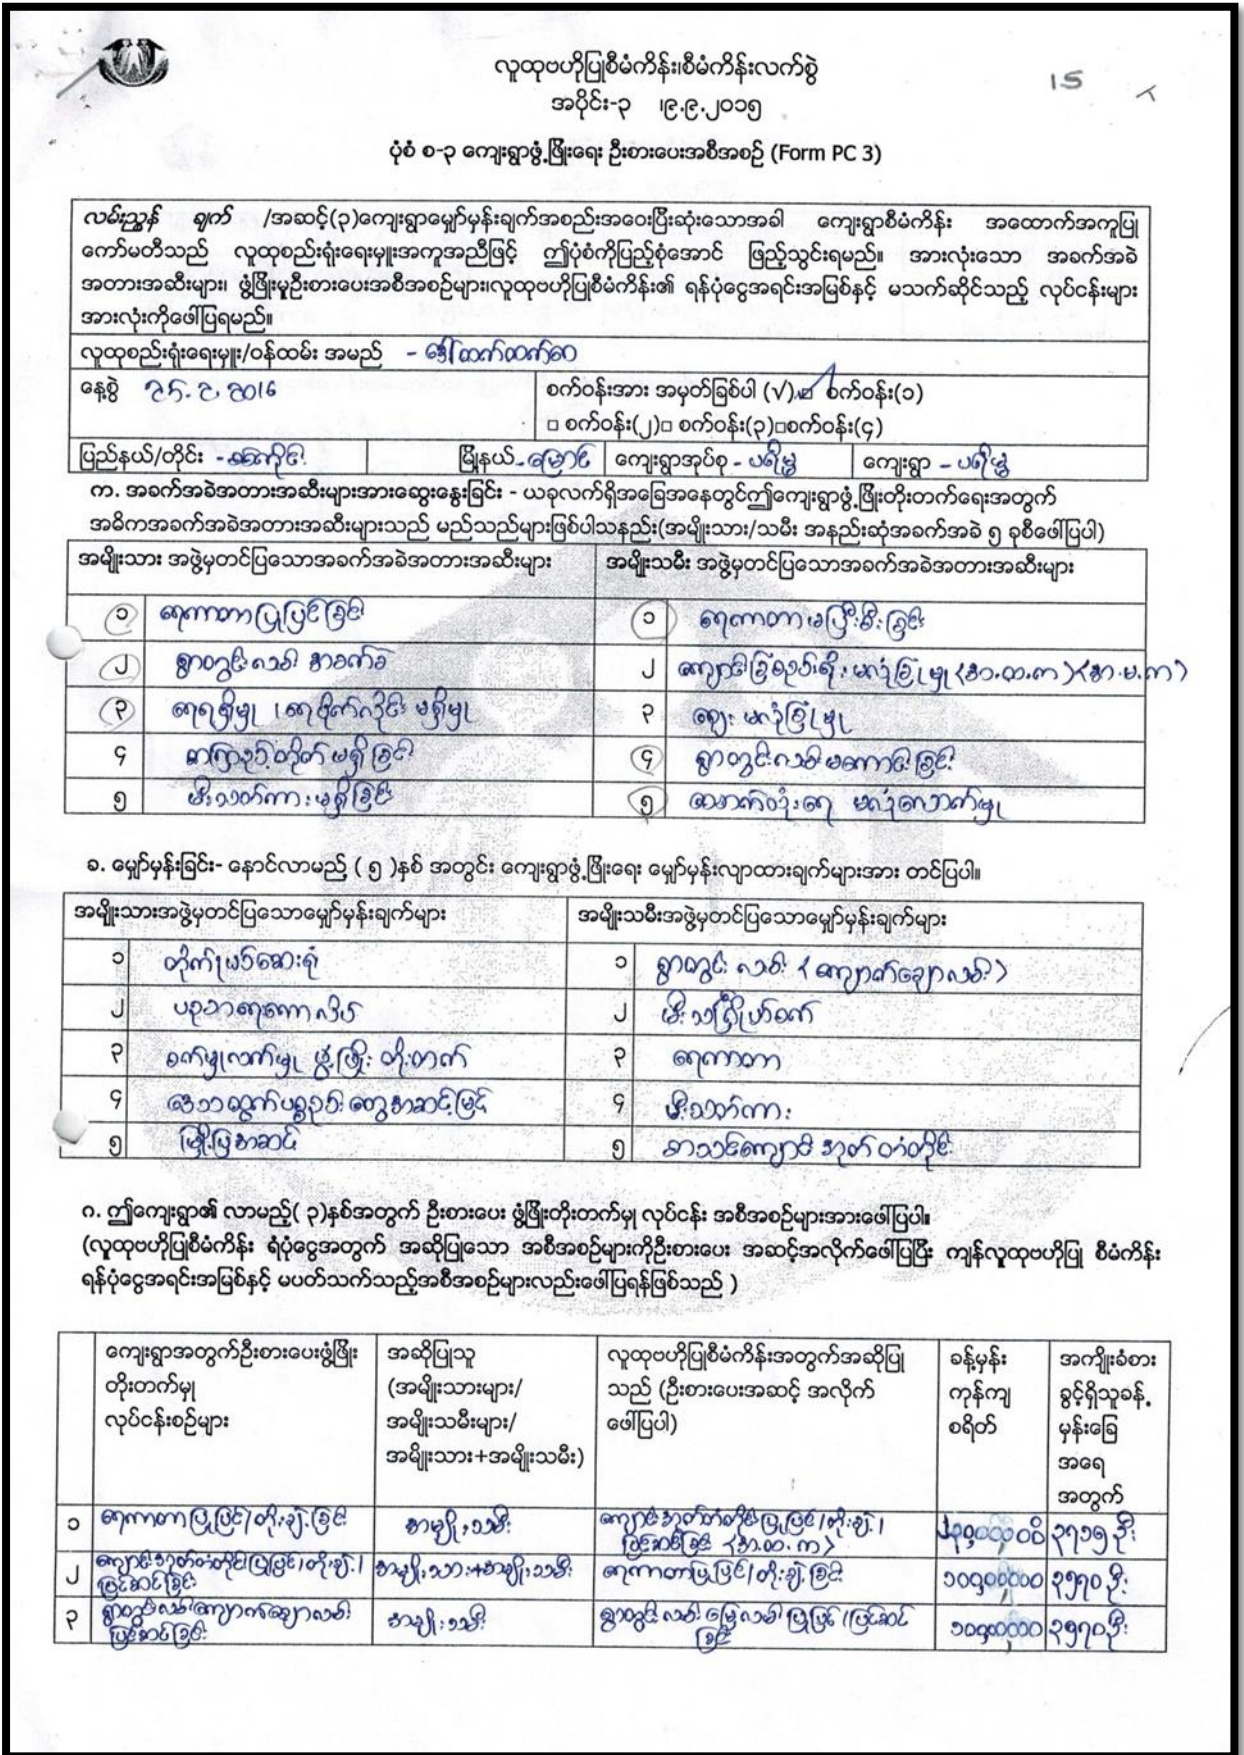 လူထုဗဟိုပြုစီမံကိန်း၊စီမံကိန်းလက်စွဲ
အပိုင်း-၃ ၊၉.၉.၂၀၁၅
15
ပုံစံ စ-၃ ကျေးရွာဖွံ့ဖြိုးရေး ဦးစားပေးအစီအစဉ် (Form PC 3)
လမ်းညွှန် ချက် /အဆင့်(၃)ကျေးရွာမျှော်မှန်းချက်အစည်းအဝေးပြီးဆုံးသောအခါ ကျေးရွာစီမံကိန်း အထောက်အကူပြု
ကော်မတီသည် လူထုစည်းရုံးရေးမှူးအကူအညီဖြင့် ဤပုံစံကိုပြည့်စုံအောင် ဖြည့်သွင်းရမည်။ အားလုံးသော အခက်အခဲ
အတားအဆီးများ၊ ဖွံ့ဖြိုးမှုဦးစားပေးအစီအစဉ်များ၊လူထုဗဟိုပြုစီမံကိန်း၏ ရန်ပုံငွေအရင်းအမြစ်နှင့် မသက်ဆိုင်သည့် လုပ်ငန်းများ
အားလုံးကိုဖေါ်ပြရမည်။
လူထုစည်းရုံးရေးမှူး/ဝန်ထမ်း အမည် - ဒေါ်ထက်ထက်ဝေ
နေ့စွဲ 25.2.2016
စက်ဝန်းအား အမှတ်ခြစ်ပါ (√) ☑ စက်ဝန်း(၁)
□ စက်ဝန်း(၂)□ စက်ဝန်း(၃)□စက်ဝန်း(၄)
ပြည်နယ်/တိုင်း - စစ်ကိုင်း မြို့နယ် - မြောင် ကျေးရွာအုပ်စု - ပရိမ္မ ကျေးရွာ - ပရိမ္မ
က. အခက်အခဲအတားအဆီးများအားဆွေးနွေးခြင်း - ယခုလက်ရှိအခြေအနေတွင်ဤကျေးရွာဖွံ့ဖြိုးတိုးတက်ရေးအတွက်
အဓိကအခက်အခဲအတားအဆီးများသည် မည်သည်များဖြစ်ပါသနည်း(အမျိုးသား/သမီး အနည်းဆုံအခက်အခဲ ၅ ခုစီဖေါ်ပြပါ)
အမျိုးသား အဖွဲ့မှတင်ပြသောအခက်အခဲအတားအဆီးများ အမျိုးသမီး အဖွဲ့မှတင်ပြသောအခက်အခဲအတားအဆီးများ
၁ ရေကာတာပြုပြင်ခြင်း ၁ ရေကာတာမပြီးစီးခြင်း
၂ ရွာတွင်းလမ်း အခက်ခဲ ၂ ကျောင်းခြံစည်းရိုး မလုံခြုံမှု (အ.ထ.က) (အ.မ.က)
၃ ရေရရှိမှု ၊ ရေပိုက်လိုင်း မရှိမှု ၃ ဈေး မလုံခြုံမှု
၄ စာကြည့်တိုက် မရှိခြင်း ၄ ရွာတွင်းလမ်းမကောင်းခြင်း
၅ မီးသတ်ကား မရှိခြင်း ၅ သောက်သုံးရေ မလုံလောက်မှု
ခ. မျှော်မှန်းခြင်း- နောင်လာမည့် ( ၅ )နှစ် အတွင်း ကျေးရွာဖွံ့ဖြိုးရေး မျှော်မှန်းလျာထားချက်များအား တင်ပြပါ။
အမျိုးသားအဖွဲ့မှတင်ပြသောမျှော်မှန်းချက်များ အမျိုးသမီးအဖွဲ့မှတင်ပြသောမျှော်မှန်းချက်များ
၁ တိုက်နယ်ဆေးရုံ ၁ ရွာတွင်း လမ်း ( ကျောက်ချောလမ်း )
၂ ပညာရေးကောလိပ် ၂ မီးသဂြိုဟ်စက်
၃ စက်မှုလက်မှု ဖွံ့ဖြိုး တိုးတက် ၃ ရေကာတာ
၄ ဒေသထွက်ပစ္စည်းတွေအဆင့်မြင့် ၄ မီးသတ်ကား
၅ မြို့ပြအဆင့် ၅ စာသင်ကျောင်း အုတ်တံတိုင်း
ဂ. ဤကျေးရွာ၏ လာမည့်( ၃)နှစ်အတွက် ဦးစားပေး ဖွံ့ဖြိုးတိုးတက်မှု လုပ်ငန်း အစီအစဉ်များအားဖေါ်ပြပါ။
(လူထုဗဟိုပြုစီမံကိန်း ရံပုံငွေအတွက် အဆိုပြုသော အစီအစဉ်များကိုဦးစားပေး အဆင့်အလိုက်ဖေါ်ပြပြီး ကျန်လူထုဗဟိုပြု စီမံကိန်း
ရန်ပုံငွေအရင်းအမြစ်နှင့် မပတ်သက်သည့်အစီအစဉ်များလည်းဖေါ်ပြရန်ဖြစ်သည် )
ကျေးရွာအတွက်ဦးစားပေးဖွံ့ဖြိုး
တိုးတက်မှု
လုပ်ငန်းစဉ်များ
အဆိုပြုသူ
(အမျိုးသားများ/
အမျိုးသမီးများ/
အမျိုးသား+အမျိုးသမီး)
လူထုဗဟိုပြုစီမံကိန်းအတွက်အဆိုပြု
သည် (ဦးစားပေးအဆင့် အလိုက်
ဖေါ်ပြပါ)
ခန့်မှန်း
ကုန်ကျ
စရိတ်
အကျိုးခံစား
ခွင့်ရှိသူခန့်
မှန်းခြေ
အရေ
အတွက်
၁ ရေကာတာပြုပြင်/တိုးချဲ့ခြင်း အမျိုးသမီး ကျောင်းအုတ်တံတိုင်းပြုပြင်/တိုးချဲ့/
ပြင်ဆင်ခြင်း (အ.ထ.က) ၃၇၁၅ ဦး
၂ ကျောင်းအုတ်တံတိုင်းပြုပြင်/တိုးချဲ့/
ပြင်ဆင်ခြင်း အမျိုးသား+အမျိုးသမီး ရေကာတာပြုပြင်/တိုးချဲ့ခြင်း ၃၅၇၀ ဦး
၃ ရွာတွင်းလမ်းကျောက်ချောလမ်း
ပြင်ဆင်ခြင်း အမျိုးသမီး ရွာတွင်းလမ်း မြေလမ်းပြုပြင်/ပြင်ဆင်
ခြင်း ၃၅၇၀ ဦး